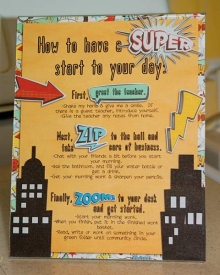 How to have a SUPER
start to your day:
First, greet the teacher.
-Shake my hand & give me a smile. If
there is a guest teacher, introduce yourself.
-Give the teacher any notes from home.
Next, ZIP to the bell and
take care of business.
-Chat with your friends a bit before you start
your morning.
-Use the bathroom, and fill your water bottle or
get a drink.
-Get your morning work & sharpen your pencils.
Finally, ZOOM to your desk
and get started.
-Start your morning work.
-When you finish, put it in the finished work
basket.
-Read, write or work on something in your
green folder until community circle.